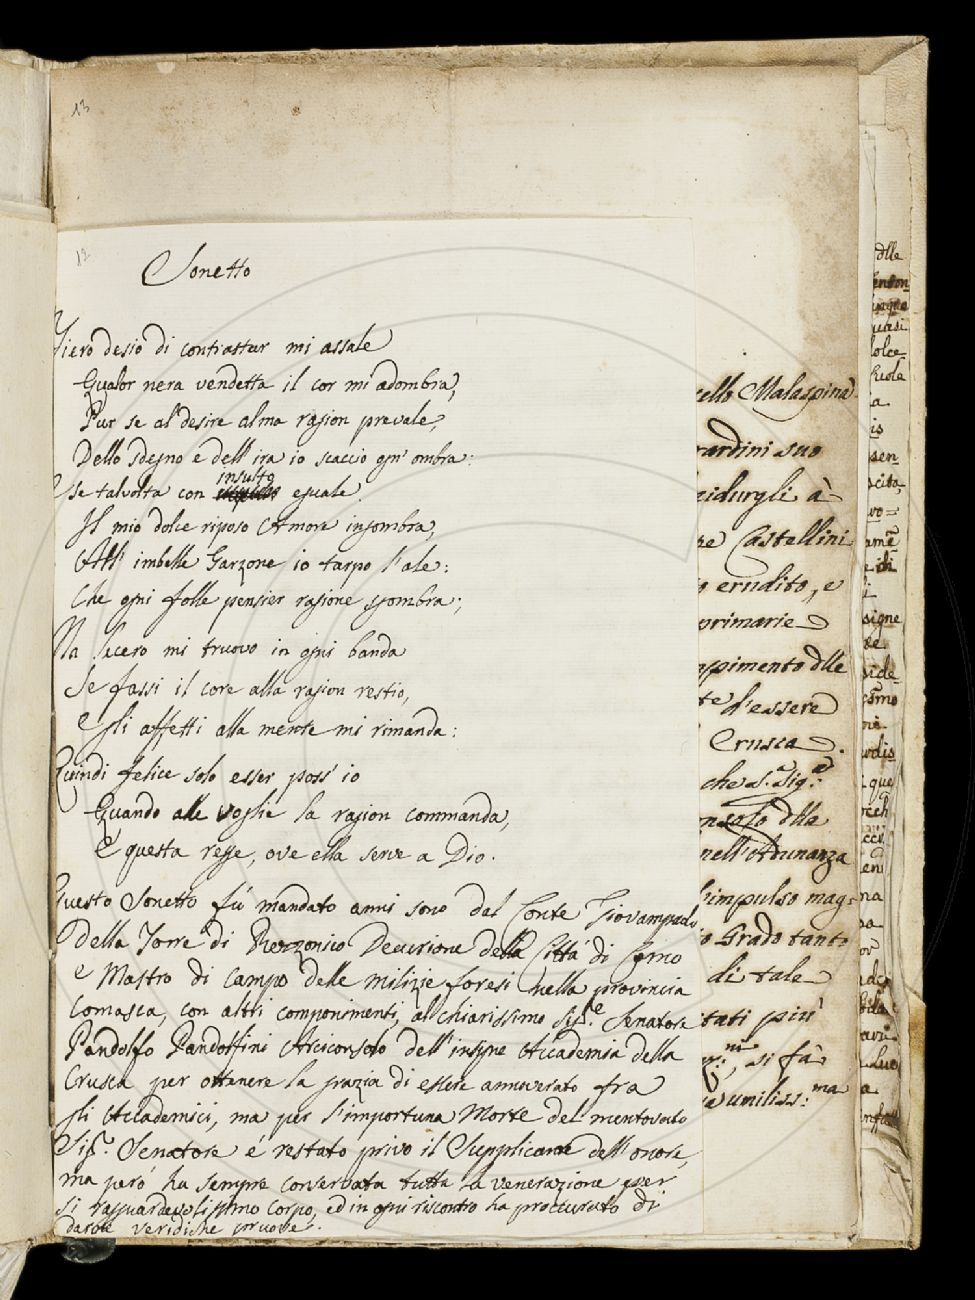 13
12
Sonetto
Fiero desio di contrastar mi assale
Qualor nera vendetta il cor mi adombra,
Pur se al desire alma ragion prevale,
Dello sdegno e dell'ira io scaccio ogn'ombra:
E se talvolta con insulto eguale
Il mio dolce riposo Amore ingombra,
All'imbelle Garzone io tarpo l'ale:
Che ogni folle pensier ragione sgombra;
Ma lucero mi truovo in ogni banda
Se fassi il core alla ragion restio,
E gli affetti alla mente mi rimanda:
Quindi felice solo esser poss'io
Quando alle voglie la ragion commanda,
E questa regge, ove ella serve a Dio.
Questo Sonetto fù mandato anni sono dal Conte Giovampaolo
Della Torre di Rezzonico Decurione della Città di Como
e Mastro di Campo delle milizie foresi nella provincia
Comasca, con altri componimenti, al chiarissimo Sig.re Senatore
Pandolfo Pandolfini Arciconsolo dell'insigne Accademia della
Crusca per ottenere la grazia di essere annuverato fra
gli Accademici, ma per l'importuna Morte del mentovato
Sig.r Senatore é restato privo il Supplicante dell'onore,
ma però ha sempre conservata tutta la venerazione per
si ragguardevolissimo Corpo, ed in ogni riscontro ha proccurato di
darne veridiche pruove.
cello Malaspina
rardini suo
à
Castellini
erudito, e
primarie
mpimento dlle
d'essere
Crusca
che S.a Sig.a
onsolo dlla
nell'Adunanza
impulso mag=
Grado tanto
di tale
tati più
si fà
umiliss:ma
dlle